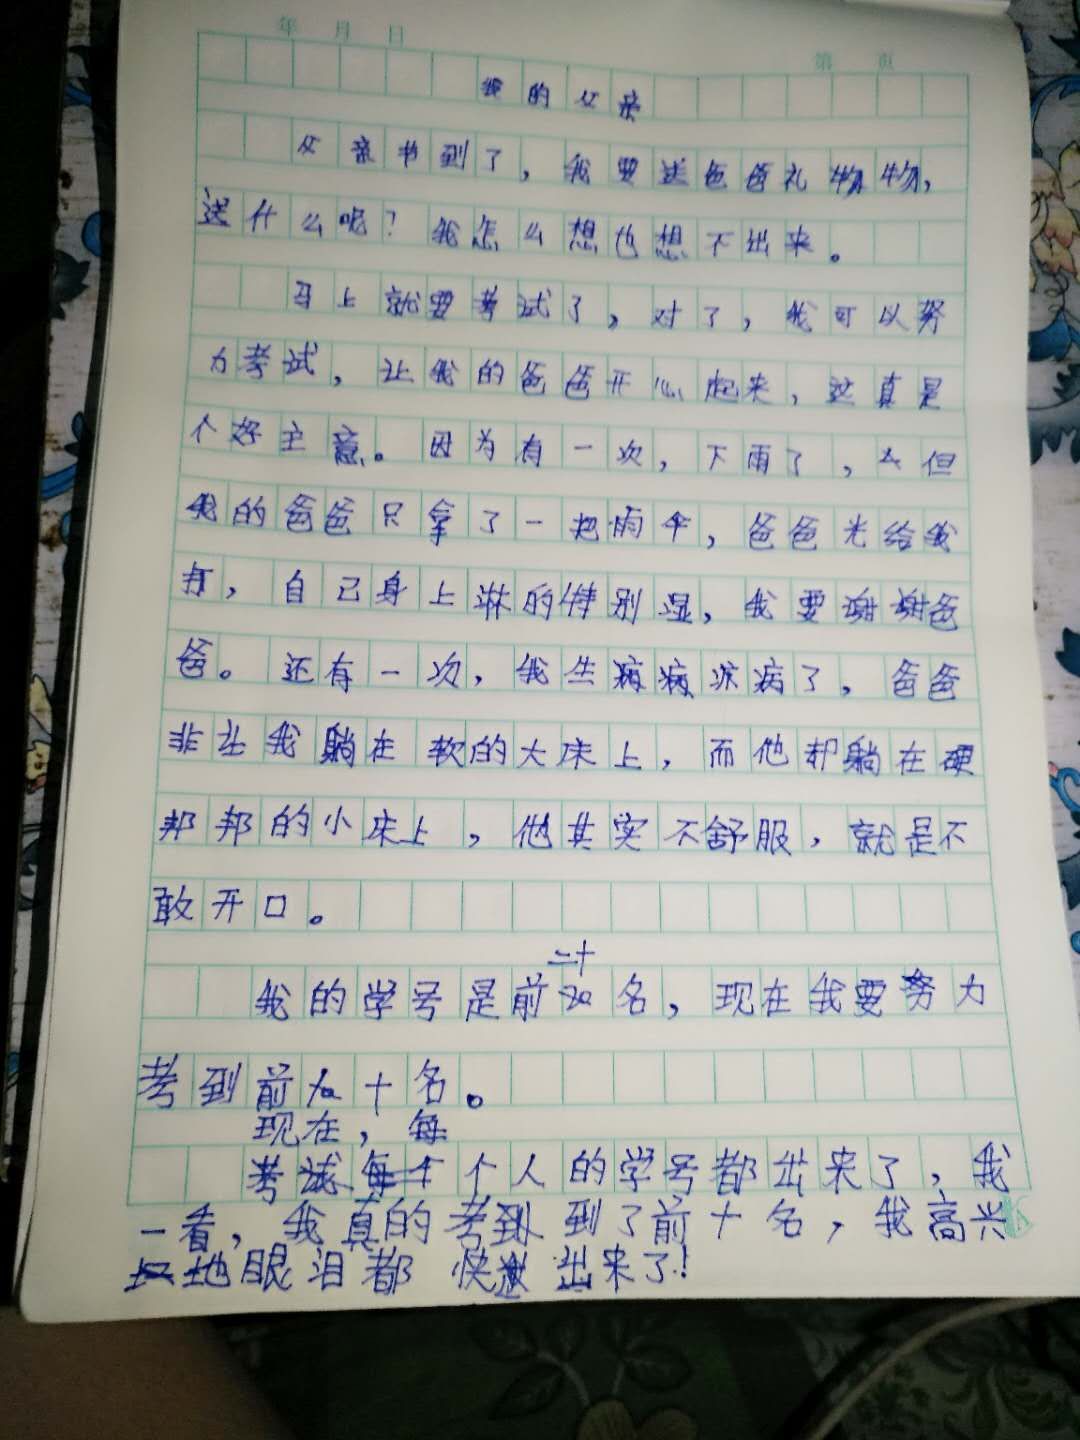 年 月 日
第 页
我的父亲
父亲节到了，我要送爸爸礼物，
送什么呢？我怎么想也想不出来。
马上就要考试了，对了，我可以努
力考试，让我的爸爸开心起来，这真是
个好主意。因为有一次，下雨了，但
我的爸爸只拿了一把雨伞，爸爸光给我
打，自己身上淋的特别湿，我要谢谢爸
爸。还有一次，我生病了，爸爸
非让我躺在软的大床上，而他却躺在硬
邦邦的小床上，他其实不舒服，就是不
敢开口。
二十
我的学号是前名，现在我要努力
考到前十名。
现在，每
考试个人的学号都出来了，我
一看，我真的考到了前十名，我高兴
地眼泪都快出来了！